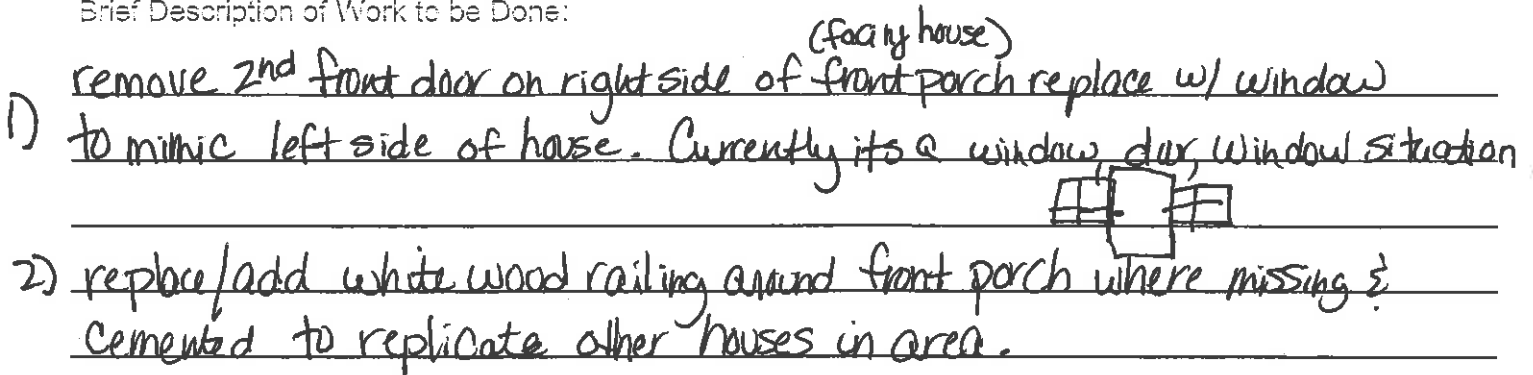 Brief Description of Work to be Done:
(facing house)
1) remove 2nd front door on right side of front porch replace w/ window
to mimic left side of house. Currently its a window, door, window situation
2) replace/add white wood railing around front porch where missing &
cemented to replicate other houses in area.